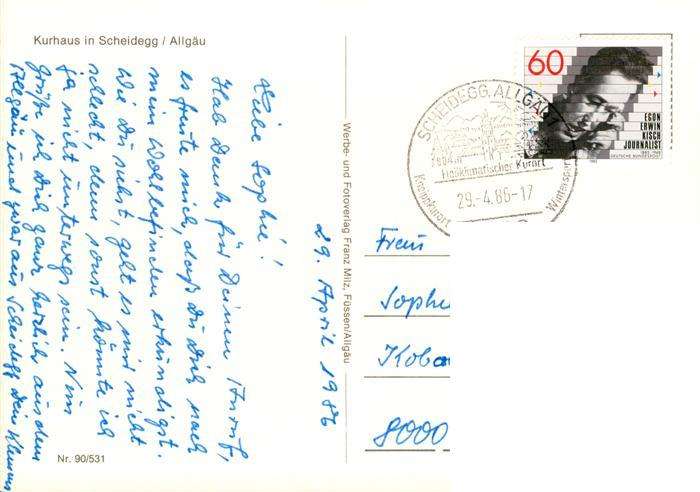 Kurhaus in Scheidegg / Allgäu
29. April 1986
Liebe Sophie!
Hab Dank für Deinen Anruf,
es freute mich, daß Du Dich nach
mein Wohlbefinden erkundigst.
Wie Du siehst, geht es mir nicht
schlecht, denn sonst könnte ich
ja nicht unterwegs sein. Nun
Grüße ich Dich ganz herzlich aus dem
Allgäu und zwar aus Scheidegg Dein Klemens
Nr. 90/531
Werbe- und Fotoverlag Franz Milz, Füssen/Allgäu
60
EGON
ERWIN
KISCH
JOURNALIST
1885-1948
DEUTSCHE BUNDESPOST
SCHEIDEGG, ALLGÄU
Heilklimatischer Kurort
29.-4.86-17
Kneippkurort
Wintersport
Frau
Sophie
Koba
8000